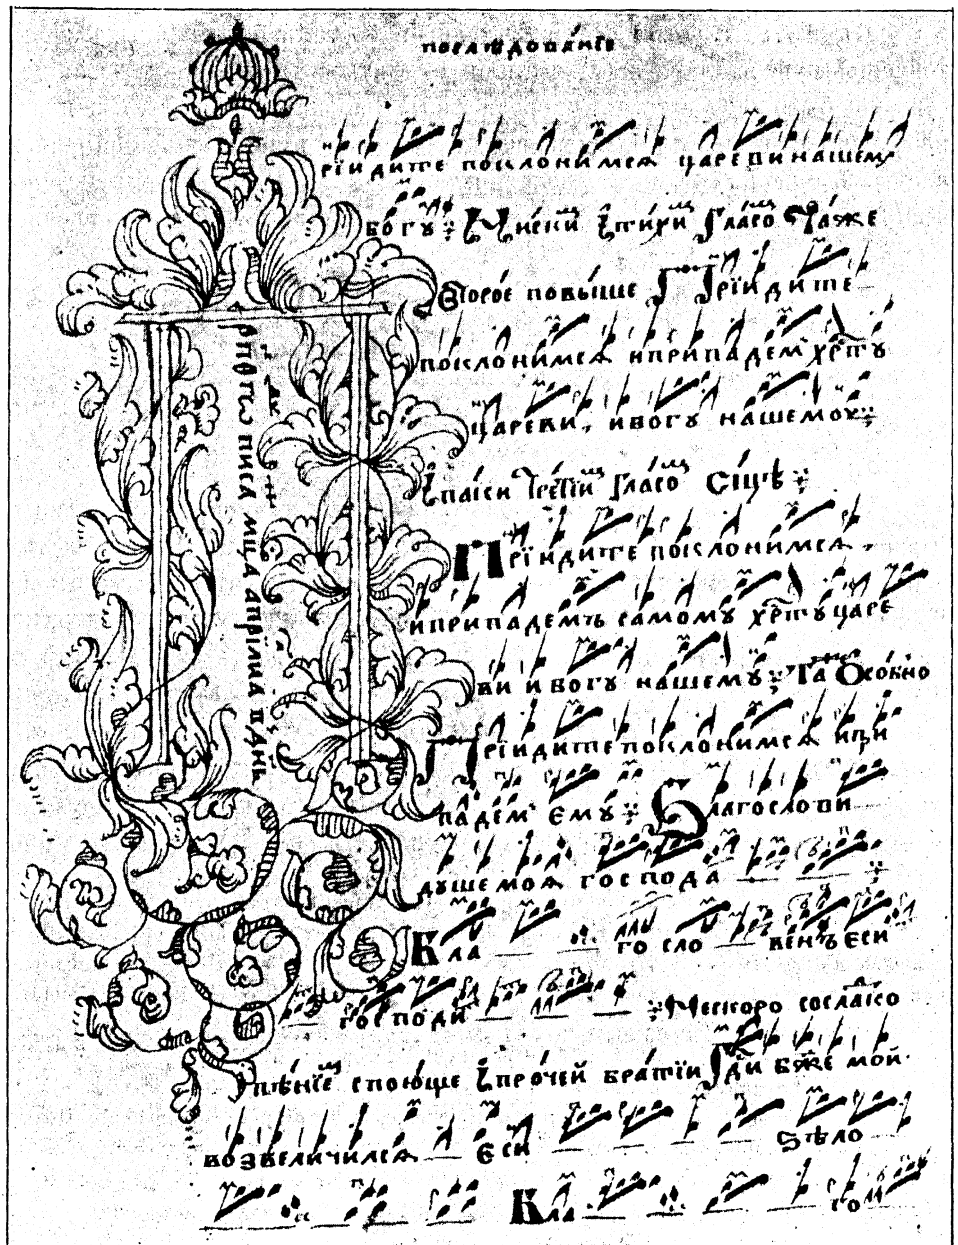 послѣдованіе
рїидите поклонимся цареви нашемꙋ
богꙋ҄ гласо таже
второе повыше Прїидите
поклонимся иприпадемъ хрⷭ҇тꙋ
цареви, ибогꙋ нашемоу
третїи гласо сїцѣ
Прїидите поклонимся,
иприпадемъ самомꙋ хрⷭ҇тꙋ царе
ви ибогꙋ нашемꙋ Та Особно
Прїидите поклонимся ипри
падемъ емꙋ Благослови
душе моя господа
Бла го сло венъ еси
господи Нескоро согласко
пѣнїе споюще прочей братїи Гдⷭ҇и бж҃е мой
возвеличился еси ѕѣло
Бла го
писа мц҃а апрїлиа в дн҃ь